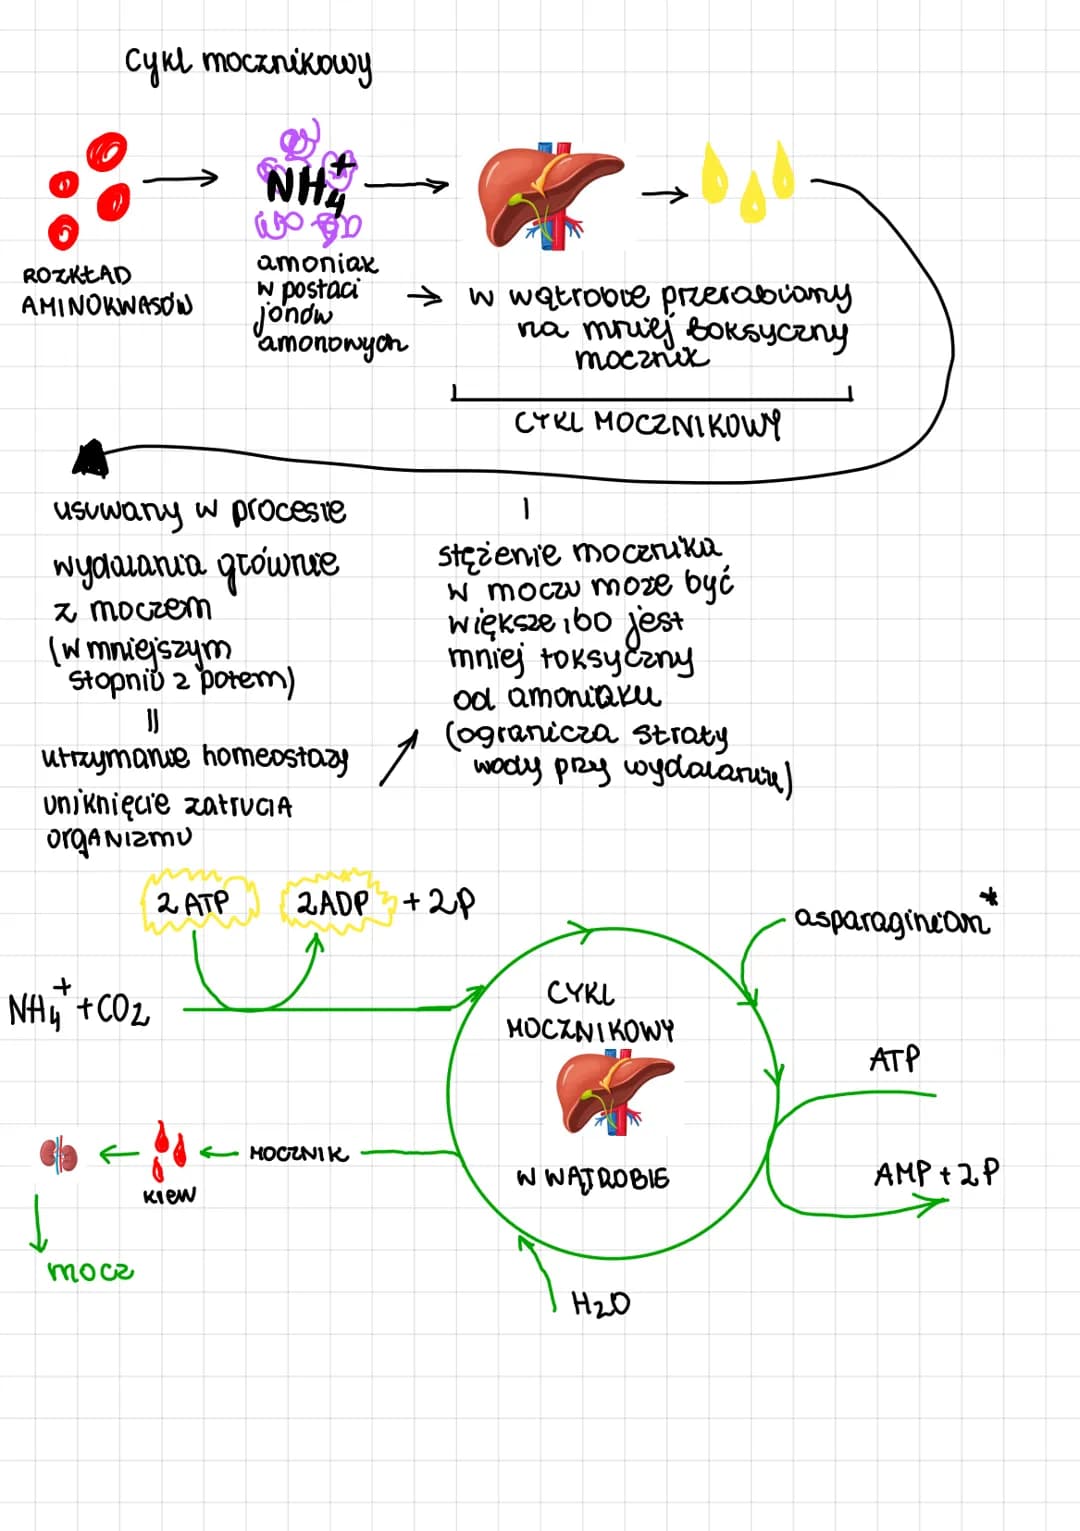 Cykl mocznikowy
NH₄⁺
ROZKŁAD
AMINOKWASÓW
amoniak
w postaci
jonów
amonowych
→ w wątrobie przerabiany
na mniej toksyczny
mocznik
CYKL MOCZNIKOWY
usuwany w procesie
wydalania głównie
z moczem
(w mniejszym
stopniu z potem)
||
utrzymanie homeostazy
uniknięcie zatrucia
organizmu
stężenie mocznika
w moczu może być
większe, bo jest
mniej toksyczny
od amoniaku
(ogranicza straty
wody przy wydalaniu)
2 ATP 2 ADP + 2P
asparaginian*
NH₄⁺ + CO₂
CYKL
MOCZNIKOWY
W WĄTROBIE
ATP
AMP + 2P
MOCZNIK
KREW
mocz
H₂O